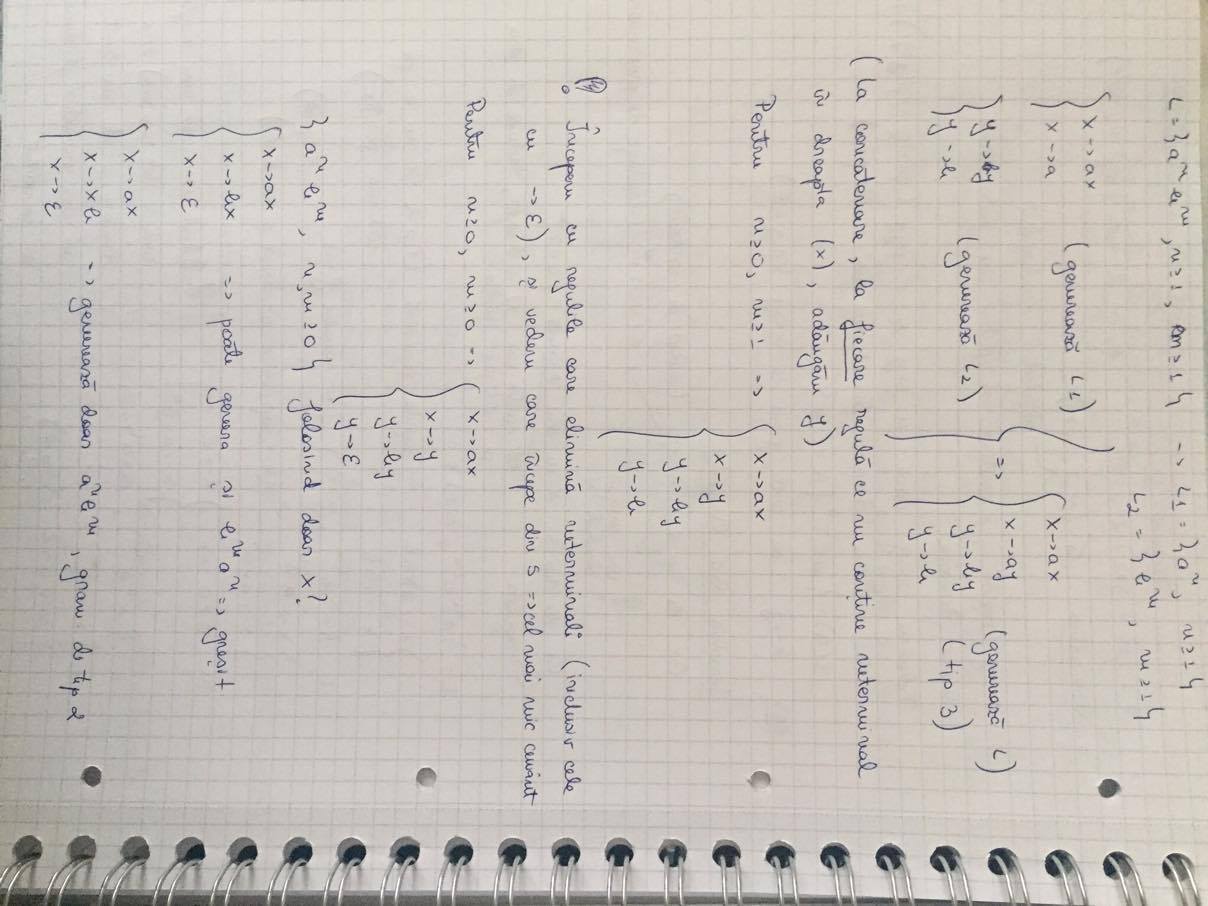 L = {aⁿ bᵐ, n≥1, m≥1} → L1 = {aⁿ, n≥1}
L2 = {bᵐ, m≥1}
{ x→ax
x→a (generează L1)
{ y→by
y→b (generează L2)
=> { x→ax
x→ay
y→by
y→b
(generează L)
(tip 3)
(La concatenare, la fiecare regulă ce nu conține neterminal
în dreapta (x), adăugăm y)
Pentru n≥0, m≥1 => { x→ax
x→y
y→by
y→b
! Începem cu regulile care elimină neterminali (inclusiv cele
cu →ε), și vedem care începe din S => cel mai mic cuvânt
Pentru n≥0, m≥0 => { x→ax
x→y
y→by
y→ε
{aⁿ bᵐ, n,m≥0} folosind doar x?
{ x→ax
x→bx => poate genera și bᵐaⁿ => greșit
x→ε
{ x→ax
x→xb → generează doar aⁿbᵐ, gram. de tip 2
x→ε